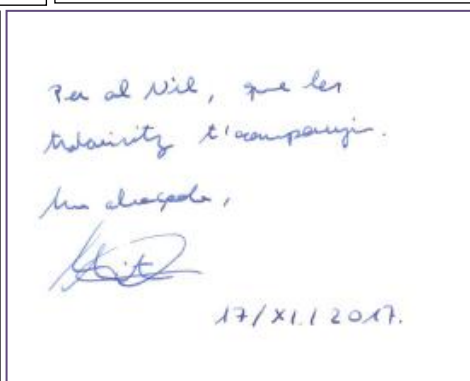 Per al Nil, que les
t'acompanyin.
Una abraçada,
17/XI/2017.